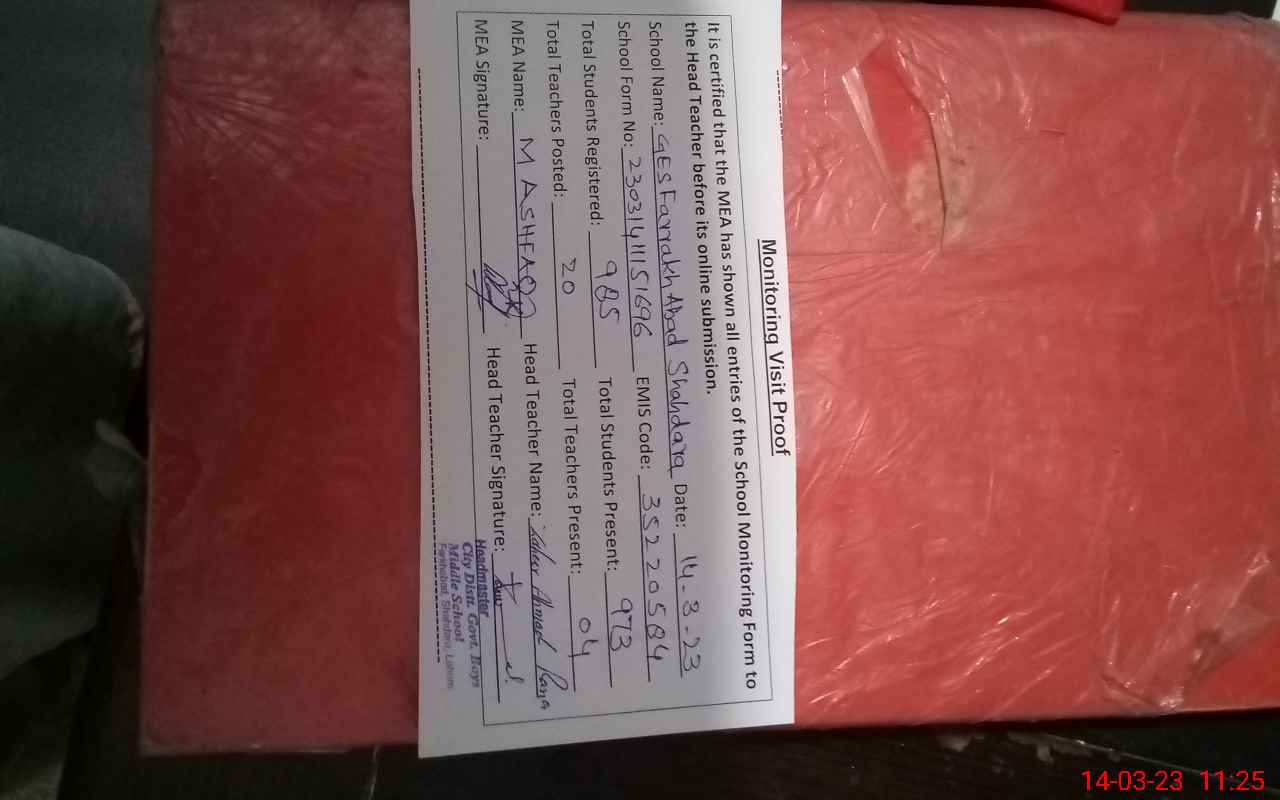 Monitoring Visit Proof
It is certified that the MEA has shown all entries of the School Monitoring Form to
the Head Teacher before its online submission.
School Name: GES Farrakh Abad Shahdara Date: 14-3-23
School Form No: 23031411151696 EMIS Code: 35220584
Total Students Registered: 985 Total Students Present: 973
Total Teachers Posted: 20 Total Teachers Present: 04
MEA Name: M ASHFAQ Head Teacher Name: Ahmad Rana
MEA Signature: Head Teacher Signature:
Headmaster
City Distt. Govt. Boys
Middle School
Shahdara, Lahore
14-03-23 11:25